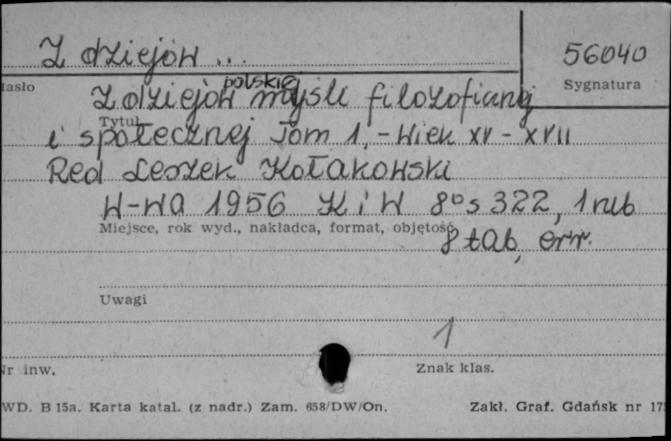 Z dziejów ...
56040
Hasło
Sygnatura
Z dziejów polskiej myśli filozoficznej
Tytuł
i społecznej Tom 1. - Wiek XV - XVII
Red Leszek Kołakowski
W-wa 1956 K i W 8° s 322, 1 nlb
Miejsce, rok wyd., nakładca, format, objętość
8 tab, err.
Uwagi
1
Nr inw.
Znak klas.
WD. B 15a. Karta katal. (z nadr.) Zam. 658/DW/On.
Zakł. Graf. Gdańsk nr 17